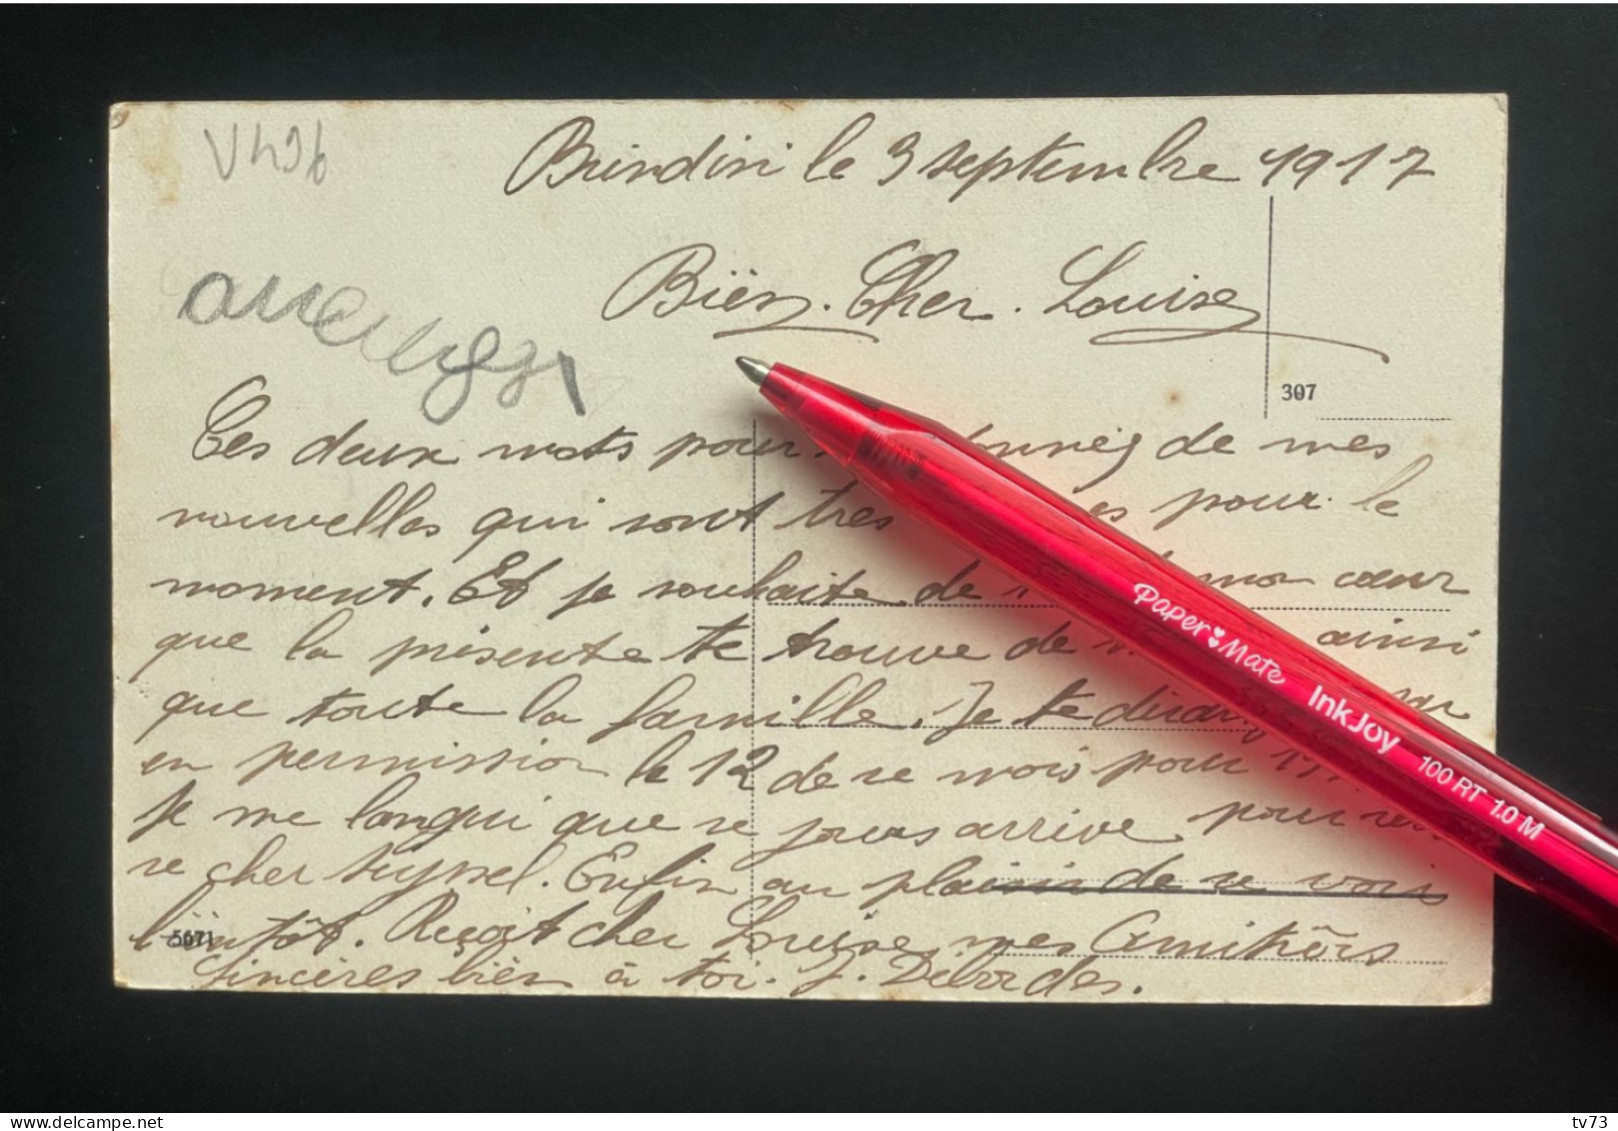 V436
Brindisi le 3 septembre 1917
Biën. Cher. Louise
307
Ces deux mots pour de mes
nouvelles qui sont tres pour le
moment. Et je souhaite de mon cœur
que la présente te trouve de ainsi
que toute la famille. Je te dirai
en permission le 12 de ce mois pour
Je me langui que se jours arrive pour
se cher Enfin au plaisir de se voir
biëntôt. Reçoit cher Louise mes Amitiôrs
5671
Sincères bièn à toi. J. Debordes.
Paper Mate InkJoy 100 RT 1.0 M
delcampe.net
tv73